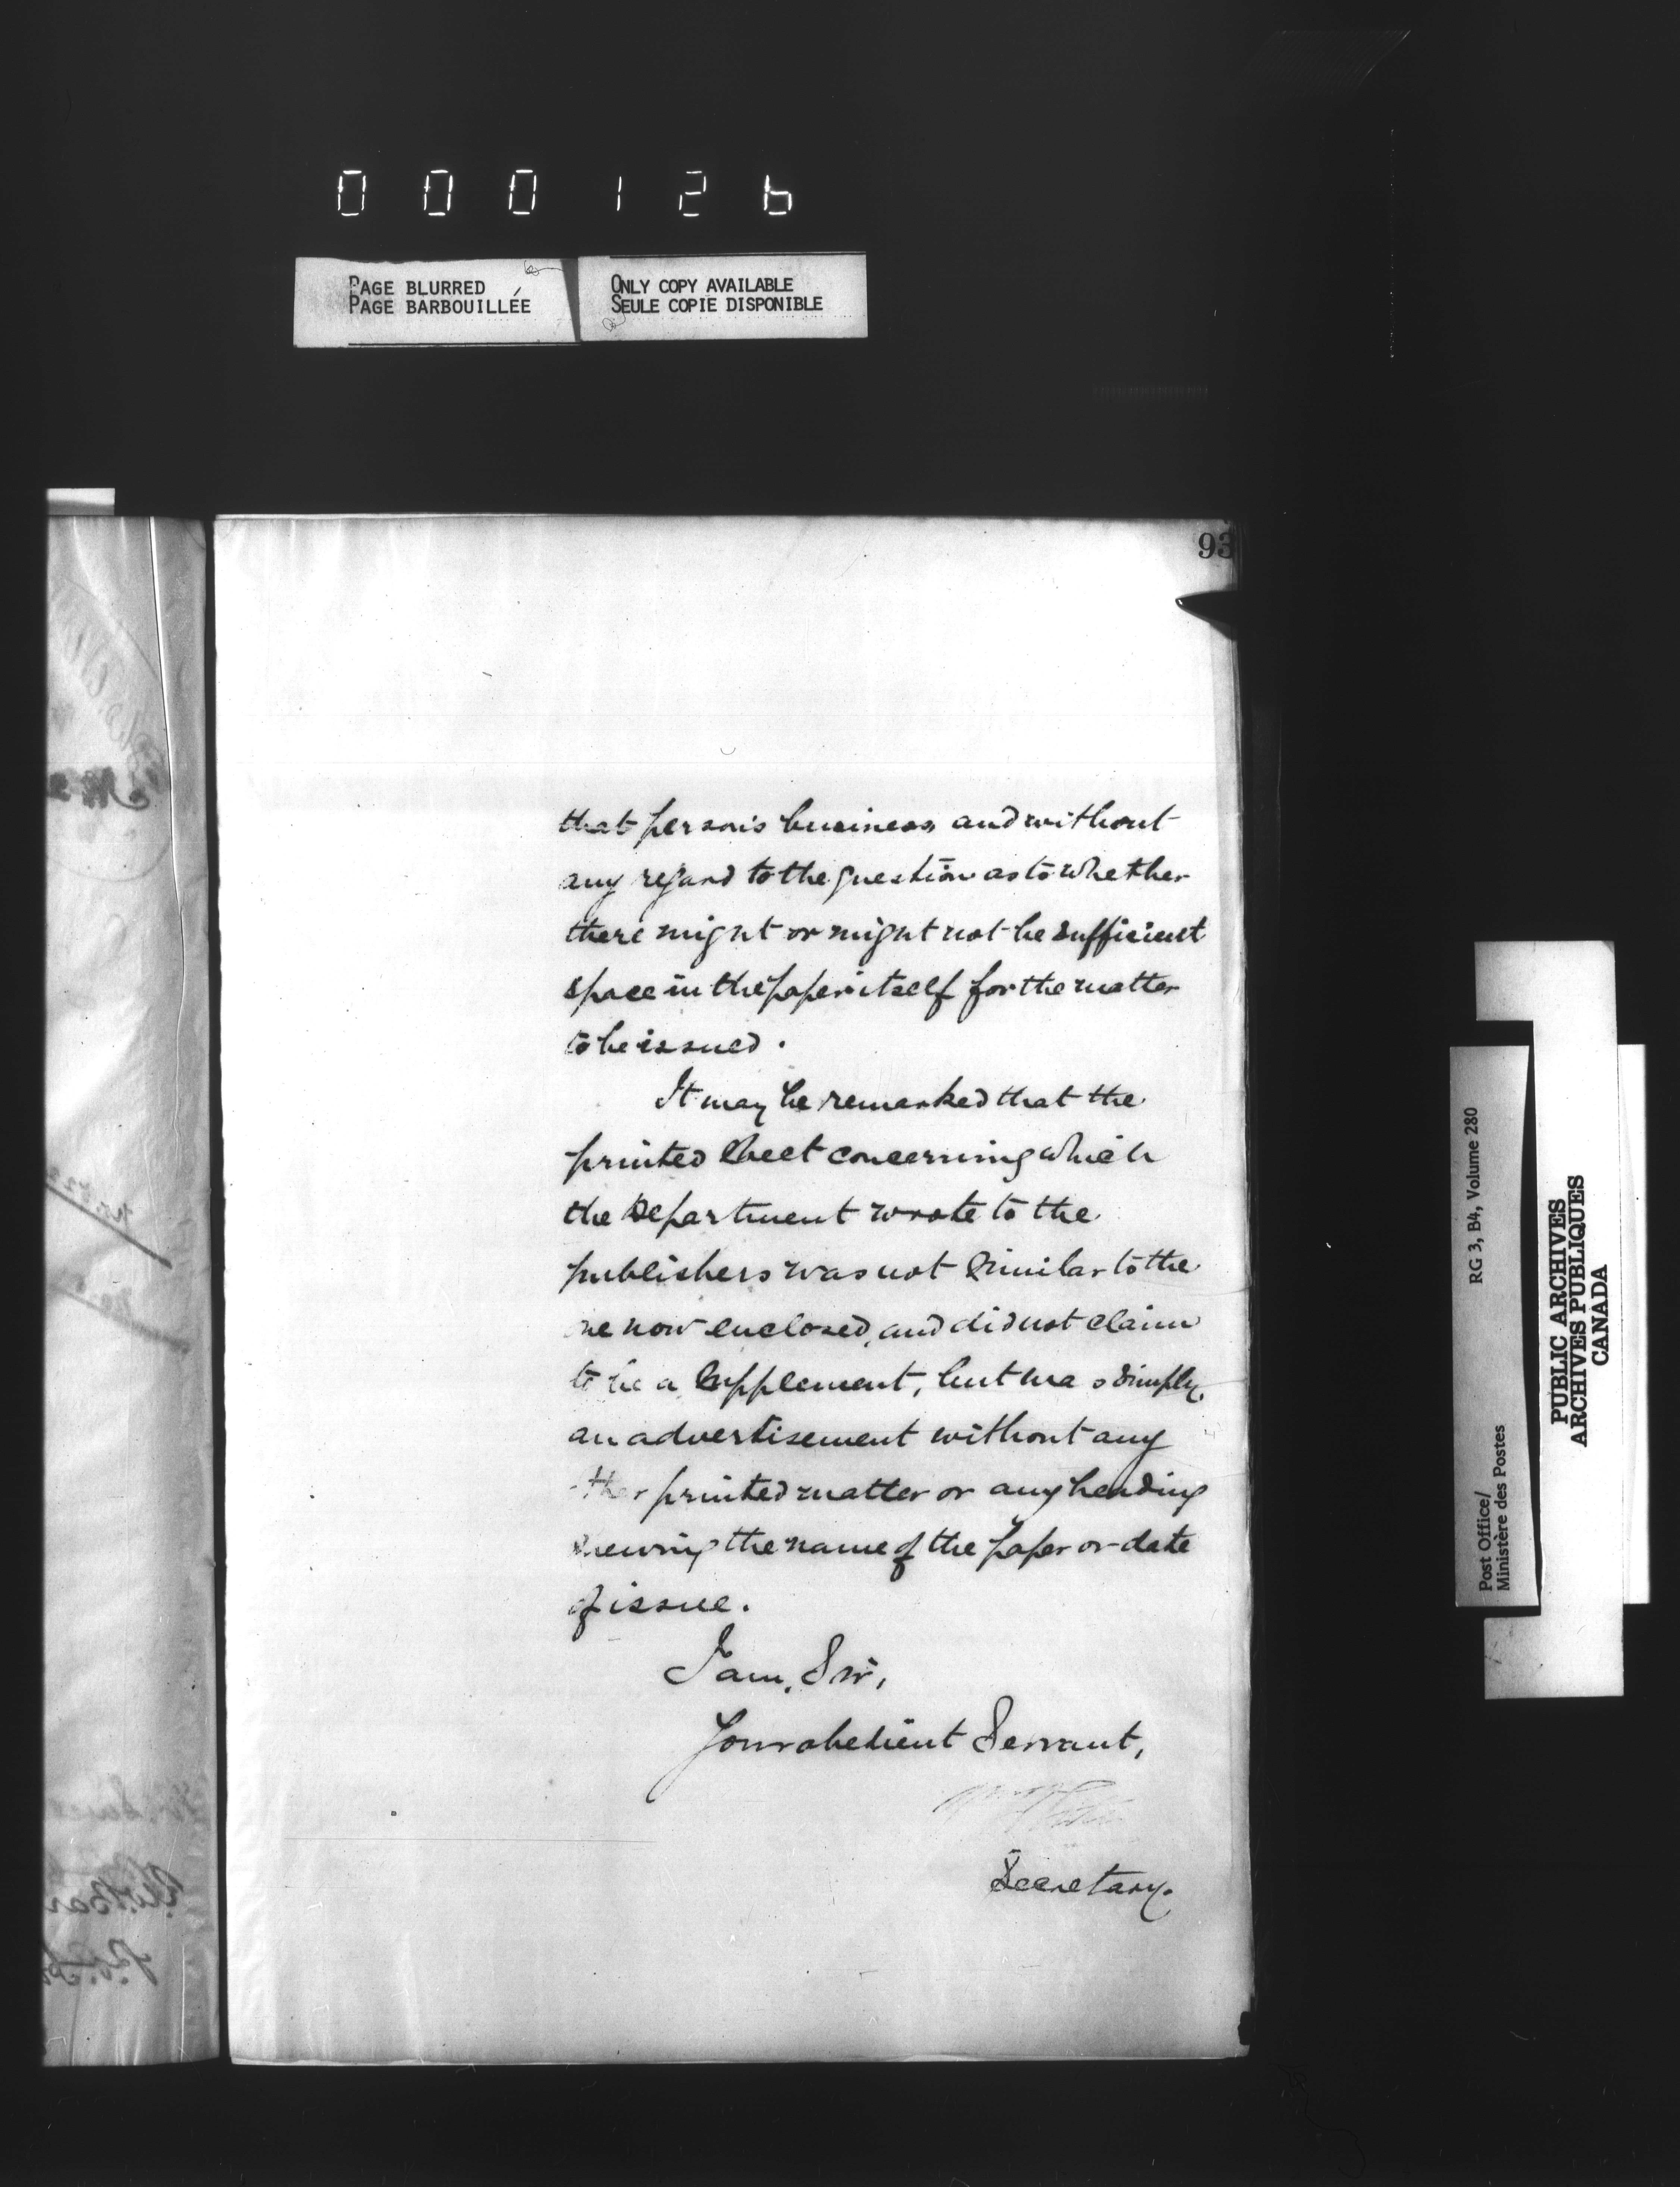 000126
PAGE BLURRED
PAGE BARBOUILLÉE
ONLY COPY AVAILABLE
SEULE COPIE DISPONIBLE
93
that person's business and without
any regard to the question as to whether
there might or might not be sufficient
space in the paper itself for the matter
to be issued.
It may be remarked that the
printed sheet concerning which
the Department wrote to the
publishers was not similar to the
one now enclosed, and did not claim
to be a supplement, but was simply
an advertisement without any
other printed matter or any heading
shewing the name of the paper or date
of issue.
I am, Sir,
Your obedient Servant,
Secretary.
Post Office/
Ministère des Postes
RG 3, B4, Volume 280
PUBLIC ARCHIVES
ARCHIVES PUBLIQUES
CANADA